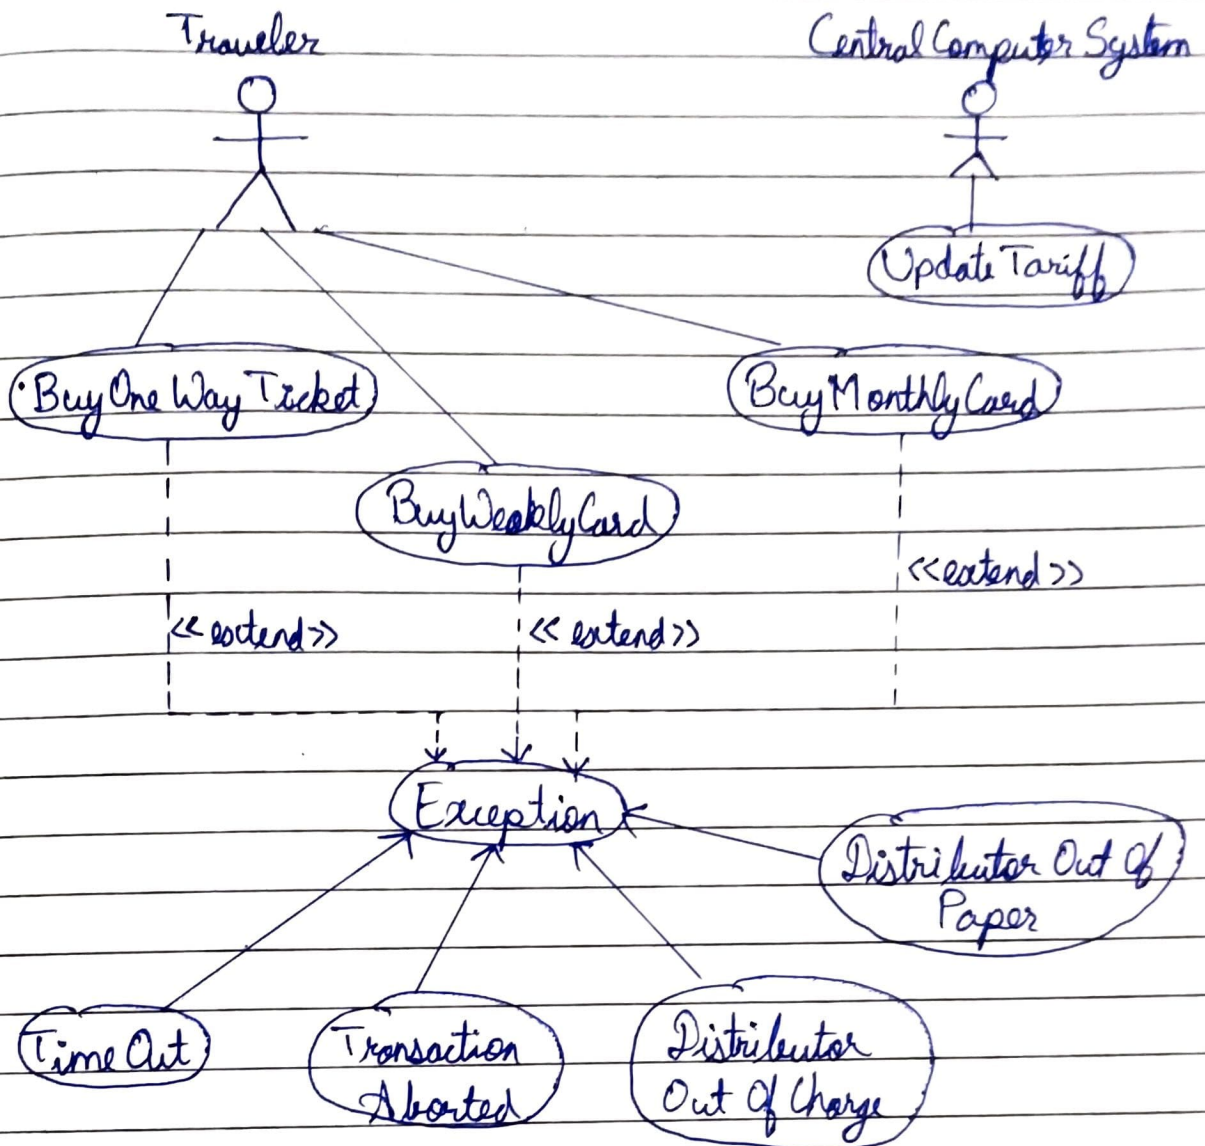 Traveler
Central Computer System
Update Tariff
Buy One Way Ticket
Buy Monthly Card
Buy Weekly Card
<<extend>>
<<extend>>
<<extend>>
Exception
Distributor Out Of
Paper
Time Out
Transaction
Aborted
Distributor
Out Of Charge